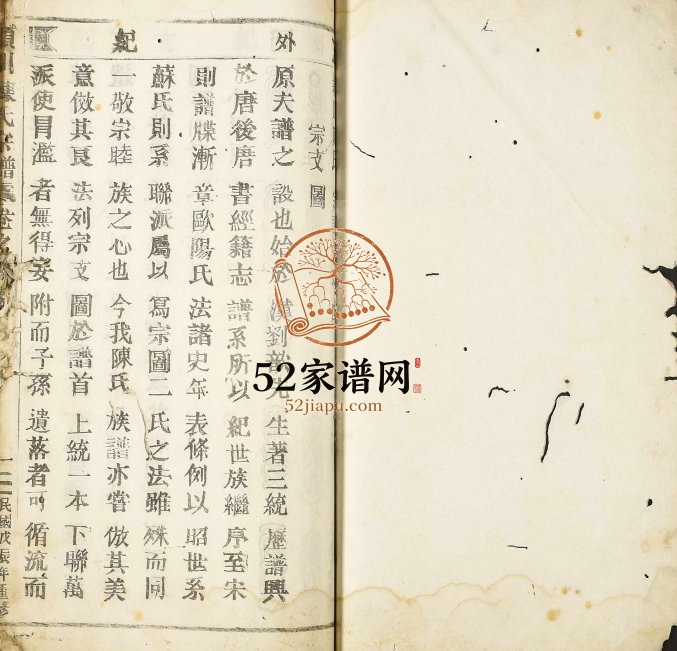 外 紀
宗文圖
原夫譜之設也始於漢劉歆先生著三統歷譜興
於唐後唐書經籍志譜系所以紀世族繼序至宋
則譜牒漸章歐陽氏法諸史年表條例以昭世系
蘇氏則系聯派屬以為宗圖二氏之法雖殊而同
一敬宗睦族之心也今我陳氏族譜亦嘗倣其美
意倣其良法列宗文圖於譜首上統一本下聯萬
派使冒濫者無得妄附而子孫遺落者可循流而
川陳氏宗譜 卷之
民國戊辰年重修
52家谱网
52jiapu.com